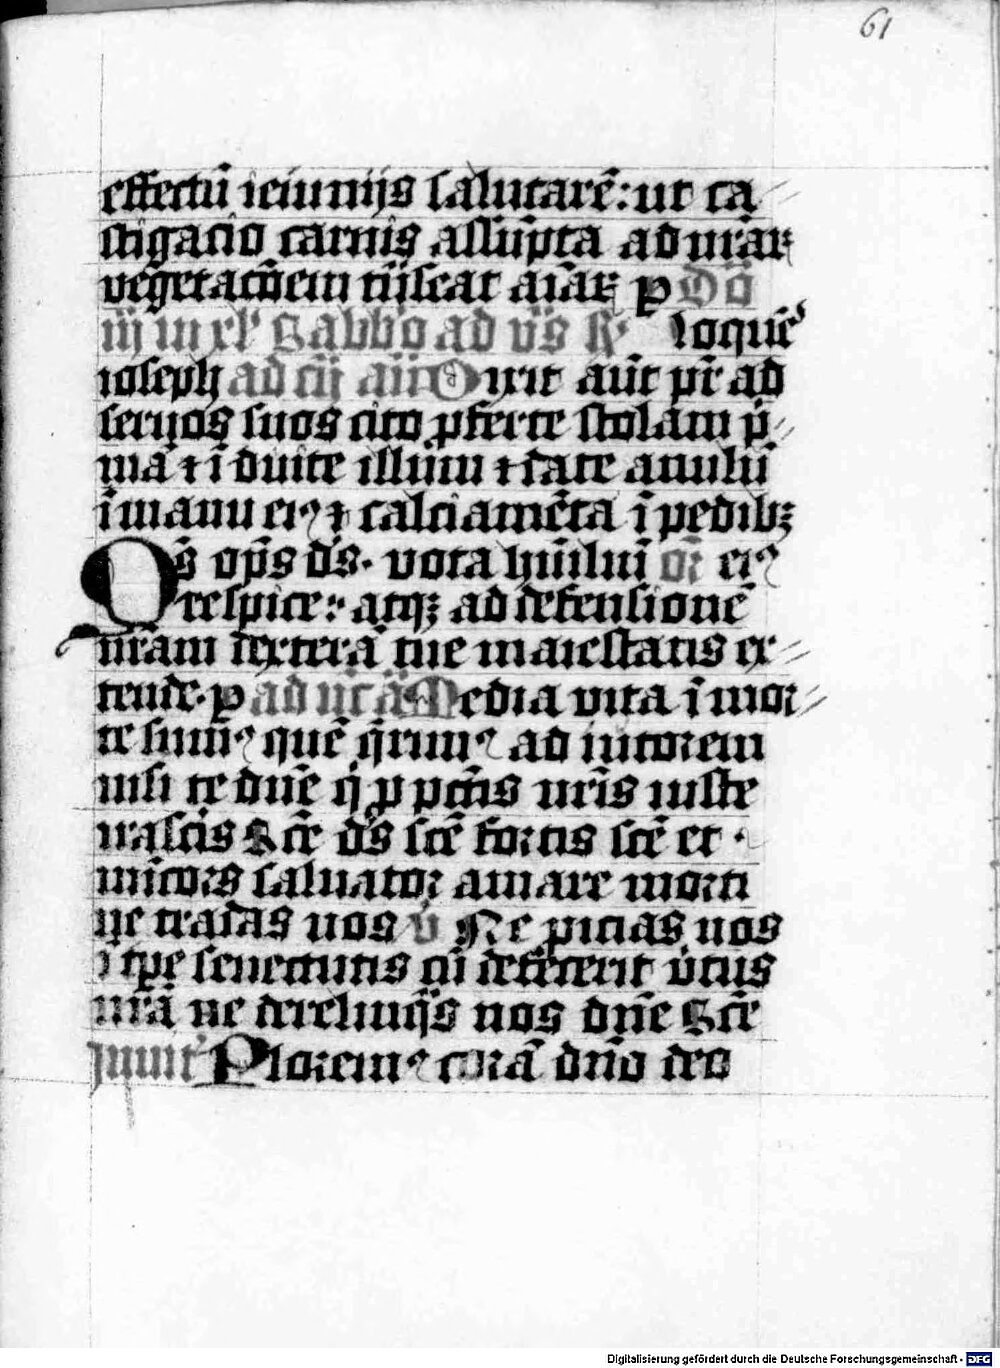 61
effectū ieiunijs salutarē: ut ca
stigacio carnis assūpta ad nr̄aꝝ
vegetac̄oem t̄nseat aīaꝝ p Dō
iij in xlͣ Sabb̄o ad v̄s R̄ loquēs
ioseph ad cū aū Dixit aūt pr̄ ad
seruos suos cito ꝓferte stolam p̄
mā ⁊ īduite illum ⁊ date anulū
ī manu eiꝰ ⁊ calciamēta ī pedibꝫ
Qs om̄ps ds̄. vota hūiliū or̄ eiꝰ
respice: atqꝫ ad defensionē
nr̄am dexterā tue maiestatis ex
tende. p ad Media vita ī mor
te sumꝰ quē q̄rimꝰ adiutorem
nisi te dn̄e q̄ ꝓ pctīs nr̄is iuste
irascis Sctē ds̄ sctē fortis sctē et
mīcors saluator amare morti
ne tradas nos v̄ Ne ꝓicias nos
ī tp̄e senectutis cū defecerit v̄tus
nr̄a ne derelinq̄s nos dn̄e Sctē
Inuit Ploremꝰ corā dn̄o deo
Digitalisierung gefördert durch die Deutsche Forschungsgemeinschaft - DFG